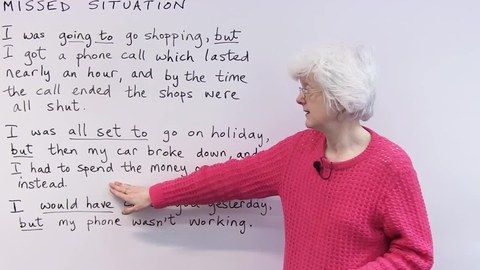 MISSED SITUATION
I was going to go shopping, but
I got a phone call which lasted
nearly an hour, and by the time
the call ended the shops were
all shut.
I was all set to go on holiday,
but then my car broke down, and
I had to spend the money
instead.
I would have you yesterday,
but my phone wasn't working.